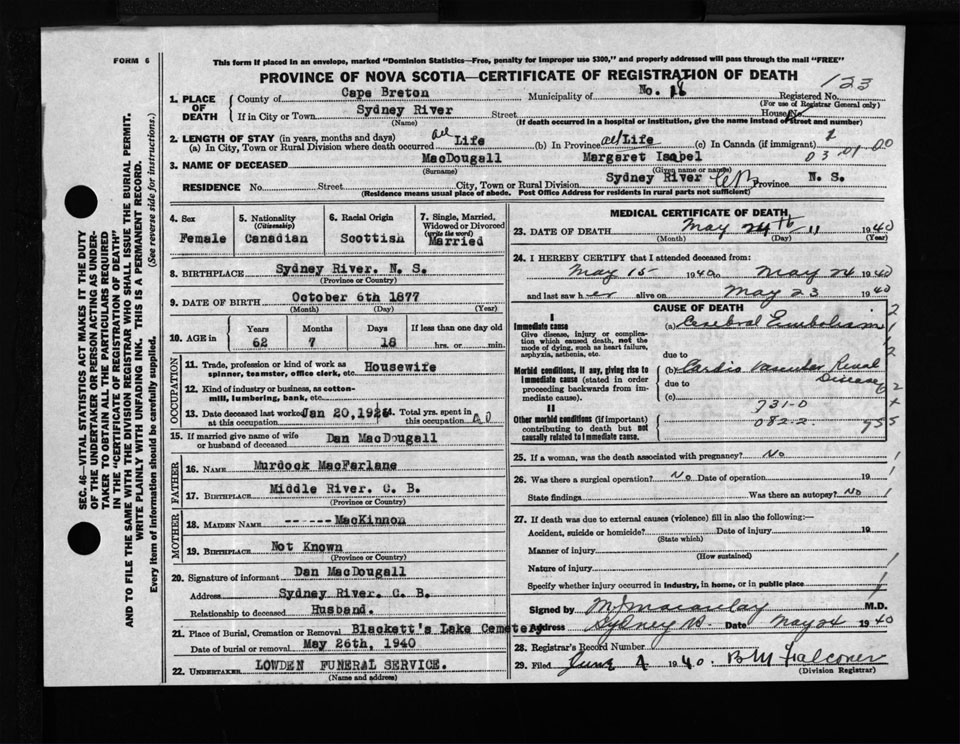 FORM 6
This form if placed in an envelope, marked "Dominion Statistics—Free, penalty for improper use $300," and properly addressed will pass through the mail "FREE"
PROVINCE OF NOVA SCOTIA—CERTIFICATE OF REGISTRATION OF DEATH
123
1. PLACE OF DEATH
County of Cape Breton Municipality of No. 18 Registered No.
(For use of Registrar General only)
If in City or Town Sydney River Street House No.
(Name) (If death occurred in a hospital or institution, give the name instead of street and number)
2. LENGTH OF STAY (in years, months and days)
(a) In City, Town or Rural Division where death occurred all Life (b) In Province all Life (c) In Canada (if immigrant)
1
03 01 00
3. NAME OF DECEASED MacDougall Margaret Isabel
(Surname) (Given name or names)
RESIDENCE No. Street City, Town or Rural Division Sydney River CB Province N. S.
(Residence means usual place of abode. Post Office Address for residents in rural parts not sufficient)
4. Sex Female
5. Nationality (Citizenship) Canadian
6. Racial Origin Scottish
7. Single, Married, Widowed or Divorced (write the word) Married
8. BIRTHPLACE Sydney River. N. S.
(Province or Country)
9. DATE OF BIRTH October 6th 1877
(Month) (Day) (Year)
10. AGE in Years Months Days If less than one day old
62 7 18 hrs. or min.
OCCUPATION
11. Trade, profession or kind of work as spinner, teamster, office clerk, etc. Housewife
12. Kind of industry or business, as cotton-mill, lumbering, bank, etc.
13. Date deceased last worked at this occupation Jan 20,192 14. Total yrs. spent in this occupation
15. If married give name of wife or husband of deceased Dan MacDougall
FATHER
16. NAME Murdock MacFarlane
17. BIRTHPLACE Middle River. C. B.
(Province or Country)
MOTHER
18. MAIDEN NAME ------MacKinnon
19. BIRTHPLACE Not Known
(Province or Country)
20. Signature of informant Dan MacDougall
Address Sydney River. C. B.
Relationship to deceased Husband.
21. Place of Burial, Cremation or Removal Blackett's Lake Cemetery
Date of burial or removal May 26th, 1940
22. UNDERTAKER LOWDEN FUNERAL SERVICE.
(Name and address)
MEDICAL CERTIFICATE OF DEATH
23. DATE OF DEATH May 24th 11 1940
(Month) (Day) (Year)
24. I HEREBY CERTIFY that I attended deceased from:
May 15 1940 to May 24 1940
and last saw her alive on May 23 1940
CAUSE OF DEATH
I
Immediate cause
Give disease, injury or complication which caused death, not the mode of dying, such as heart failure, asphyxia, asthenia, etc.
(a) Cerebral Embolism
due to
Morbid conditions, if any, giving rise to immediate cause (stated in order proceeding backwards from immediate cause).
(b) Cardio Vascular Renal Disease
due to
(c)
731-0
II
Other morbid conditions (if important) contributing to death but not causally related to immediate cause.
082-2
25. If a woman, was the death associated with pregnancy? No
26. Was there a surgical operation? No Date of operation 19
State findings Was there an autopsy? No
27. If death was due to external causes (violence) fill in also the following:—
Accident, suicide or homicide? Date of injury 19
(State which)
Manner of injury
(How sustained)
Nature of injury
Specify whether injury occurred in industry, in home, or in public place
Signed by M J Macaulay M.D.
Address Sydney Date May 24 1940
28. Registrar's Record Number
29. Filed June 4 1940 B M Falconer
(Division Registrar)
SEC. 46—VITAL STATISTICS ACT MAKES IT THE DUTY
OF THE UNDERTAKER OR PERSON ACTING AS UNDER-
TAKER TO OBTAIN ALL THE PARTICULARS REQUIRED
IN THE "CERTIFICATE OF REGISTRATION OF DEATH"
AND TO FILE THE SAME WITH THE DIVISION REGISTRAR WHO SHALL ISSUE THE BURIAL PERMIT.
WRITE PLAINLY WITH UNFADING INK. THIS IS A PERMANENT RECORD.
Every item of information should be carefully supplied. (See reverse side for instructions.)